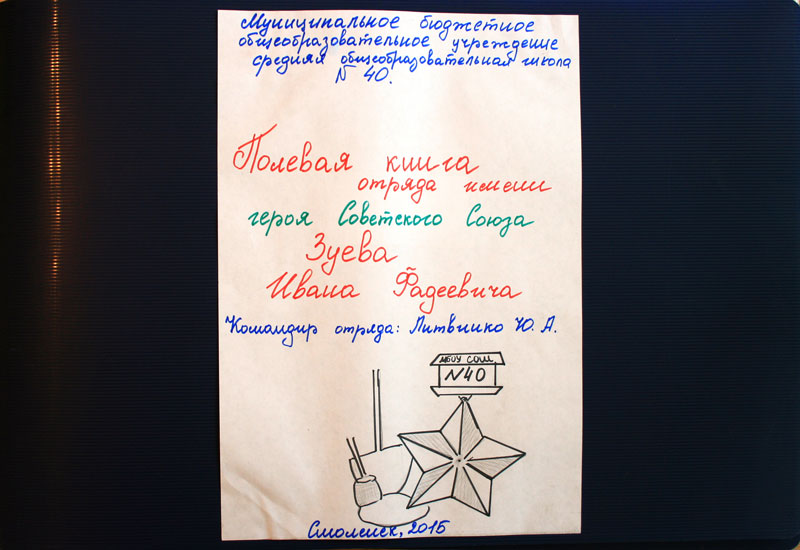 Муниципальное бюджетное
общеобразовательное учреждение
средняя общеобразовательная школа
N 40.
Полевая книга
отряда имени
героя Советского Союза
Зуева
Ивана Фадеевича
Командир отряда: Литвинко Ю. А.
МБОУ СОШ
N40
Смоленск, 2015